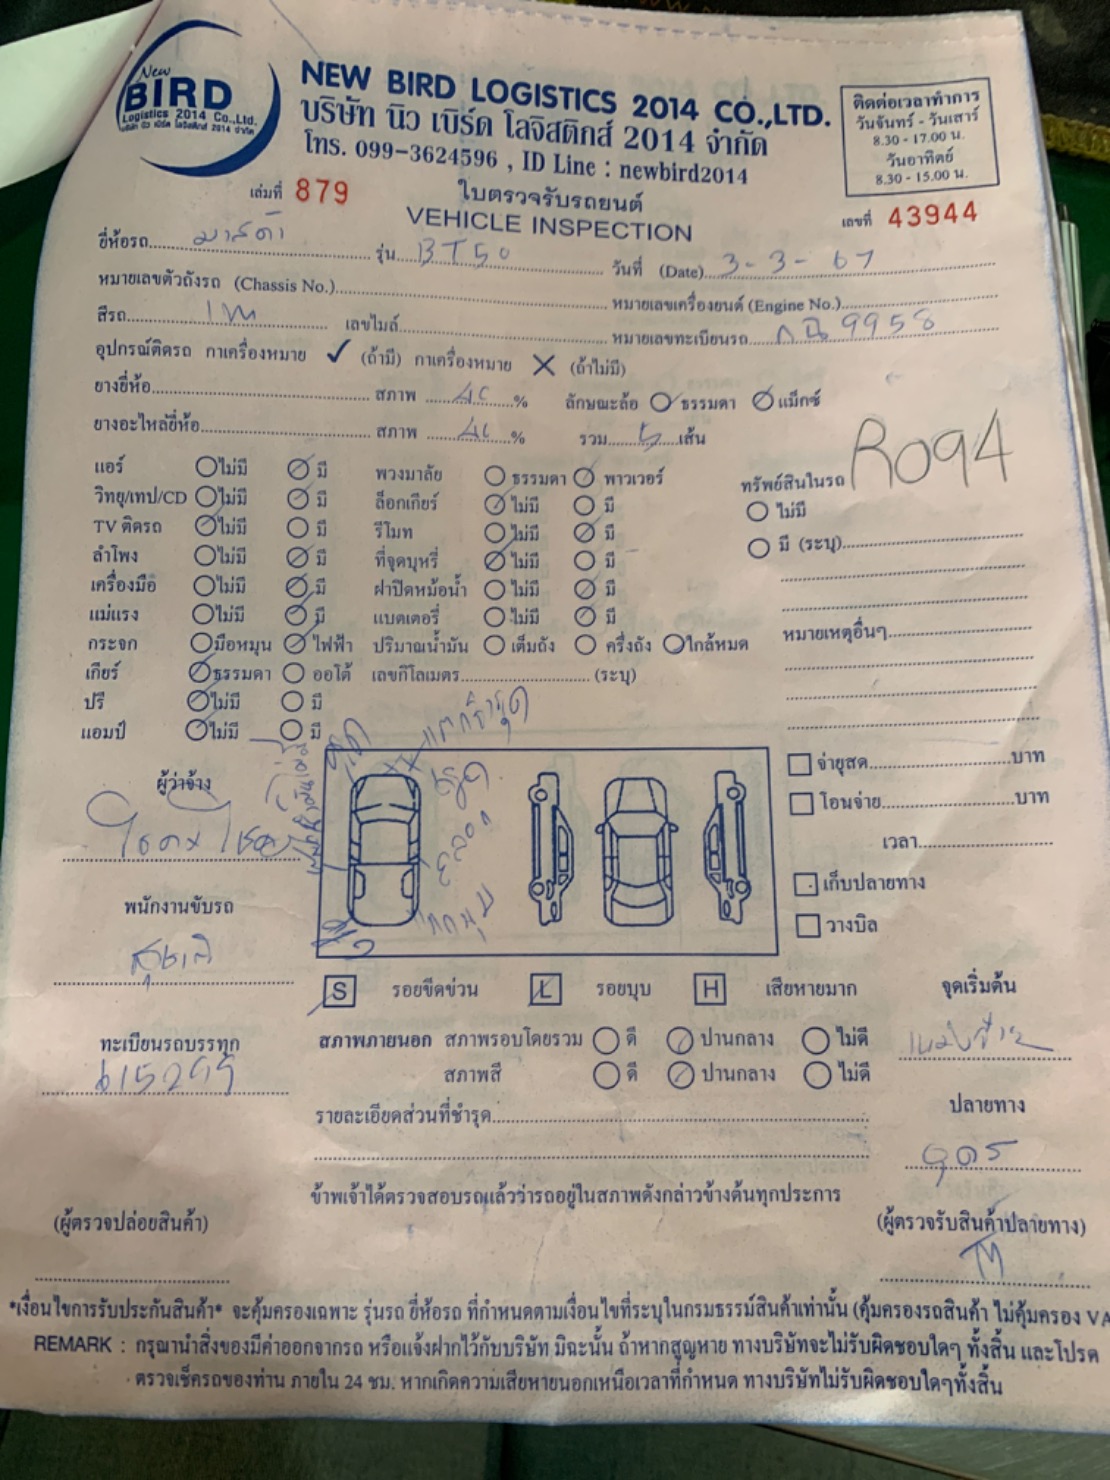 New
BIRD
Logistics 2014 Co.,Ltd.
บริษัท นิว เบิร์ด โลจิสติกส์ 2014 จำกัด
NEW BIRD LOGISTICS 2014 CO.,LTD.
บริษัท นิว เบิร์ด โลจิสติกส์ 2014 จำกัด
โทร. 099-3624596 , ID Line : newbird2014
ติดต่อเวลาทำการ
วันจันทร์ - วันเสาร์
8.30 - 17.00 น.
วันอาทิตย์
8.30 - 15.00 น.
เล่มที่ 879
ใบตรวจรับรถยนต์
VEHICLE INSPECTION
เลขที่ 43944
ยี่ห้อรถ มาสด้า รุ่น BT50 วันที่ (Date) 3-3-67
หมายเลขตัวถังรถ (Chassis No.) หมายเลขเครื่องยนต์ (Engine No.)
สีรถ เทา เลขไมล์ หมายเลขทะเบียนรถ 9958
อุปกรณ์ติดรถ กาเครื่องหมาย ✓ (ถ้ามี) กาเครื่องหมาย ✕ (ถ้าไม่มี)
ยางยี่ห้อ สภาพ % ลักษณะล้อ ธรรมดา แม็กซ์
ยางอะไหล่ยี่ห้อ สภาพ % รวม 5 เส้น
R094
แอร์ ไม่มี มี พวงมาลัย ธรรมดา พาวเวอร์ ทรัพย์สินในรถ
วิทยุ/เทป/CD ไม่มี มี ล็อกเกียร์ ไม่มี มี ไม่มี
TV ติดรถ ไม่มี มี รีโมท ไม่มี มี มี (ระบุ)
ลำโพง ไม่มี มี ที่จุดบุหรี่ ไม่มี มี
เครื่องมือ ไม่มี มี ฝาปิดหม้อน้ำ ไม่มี มี
แม่แรง ไม่มี มี แบตเตอรี่ ไม่มี มี หมายเหตุอื่นๆ
กระจก มือหมุน ไฟฟ้า ปริมาณน้ำมัน เต็มถัง ครึ่งถัง ใกล้หมด
เกียร์ ธรรมดา ออโต้ เลขกิโลเมตร (ระบุ)
ปรี ไม่มี มี
แอมป์ ไม่มี มี
ผู้ว่าจ้าง
แตกชำรุด
ขูด
ถลอก
จ่ายสด บาท
โอนจ่าย บาท
เวลา
เก็บปลายทาง
วางบิล
พนักงานขับรถ
S รอยขีดข่วน L รอยบุบ H เสียหายมาก
จุดเริ่มต้น
ทะเบียนรถบรรทุก
สภาพภายนอก สภาพรอบโดยรวม ดี ปานกลาง ไม่ดี
สภาพสี ดี ปานกลาง ไม่ดี
รายละเอียดส่วนที่ชำรุด
ปลายทาง
อุดร
ข้าพเจ้าได้ตรวจสอบรถแล้วว่ารถอยู่ในสภาพดังกล่าวข้างต้นทุกประการ
(ผู้ตรวจปล่อยสินค้า) (ผู้ตรวจรับสินค้าปลายทาง)
*เงื่อนไขการรับประกันสินค้า* จะคุ้มครองเฉพาะ รุ่นรถ ยี่ห้อรถ ที่กำหนดตามเงื่อนไขที่ระบุในกรมธรรม์สินค้าเท่านั้น (คุ้มครองรถสินค้า ไม่คุ้มครอง VA
REMARK : กรุณานำสิ่งของมีค่าออกจากรถ หรือแจ้งฝากไว้กับบริษัท มิฉะนั้น ถ้าหากสูญหาย ทางบริษัทจะไม่รับผิดชอบใดๆ ทั้งสิ้น และโปรด
ตรวจเช็ครถของท่าน ภายใน 24 ชม. หากเกิดความเสียหายนอกเหนือเวลาที่กำหนด ทางบริษัทไม่รับผิดชอบใดๆทั้งสิ้น